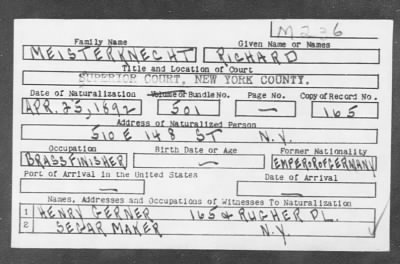 M236
Family Name Given Name or Names
MEISTERKNECHT RICHARD
Title and Location of Court
SUPERIOR COURT, NEW YORK COUNTY.
Date of Naturalization Volume or Bundle No. Page No. Copy of Record No.
APR. 25, 1892 501 — 165
Address of Naturalized Person
510 E 148 ST N.Y.
Occupation Birth Date or Age Former Nationality
BRASS FINISHER — EMPEROR OF GERMANY
Port of Arrival in the United States Date of Arrival
— —
Names, Addresses and Occupations of Witnesses To Naturalization
1 HENRY GERNER 165 & PL.
2 SEGAR MAKER N.Y.